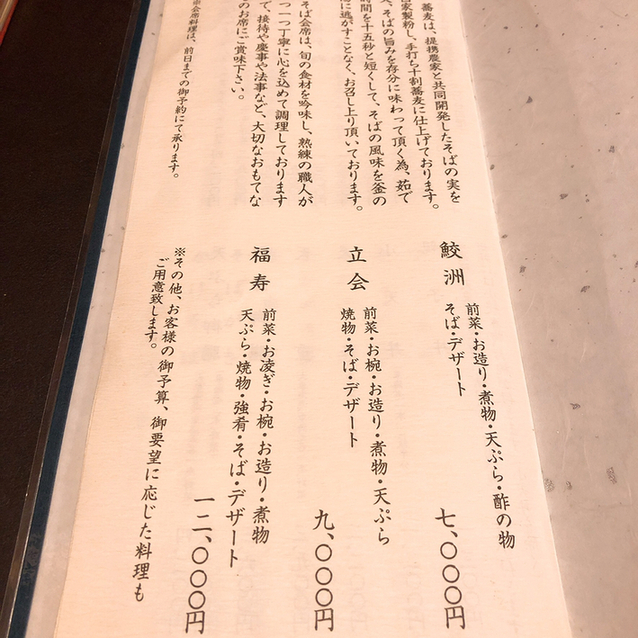 蕎麦は、提携農家と共同開発したそばの実を
家製粉し、手打ち十割蕎麦に仕上げております。
、そばの旨みを存分に味わって頂く為、茹で
時間を十五秒と短くして、そばの風味を釜の
に逃がすことなく、お召し上り頂いております。
そば会席は、旬の食材を吟味し、熟練の職人が
一つ一つ丁寧に心を込めて調理しております
て、接待や慶事や法事など、大切なおもてな
のお席にご賞味下さい。
※会席料理は、前日までの御予約にて承ります。
鮫洲
前菜・お造り・煮物・天ぷら・酢の物
そば・デザート
七、〇〇〇円
立会
前菜・お椀・お造り・煮物・天ぷら
焼物・そば・デザート
九、〇〇〇円
福寿
前菜・お凌ぎ・お椀・お造り・煮物
天ぷら・焼物・強肴・そば・デザート
一二、〇〇〇円
※その他、お客様の御予算、御要望に応じた料理も
ご用意致します。